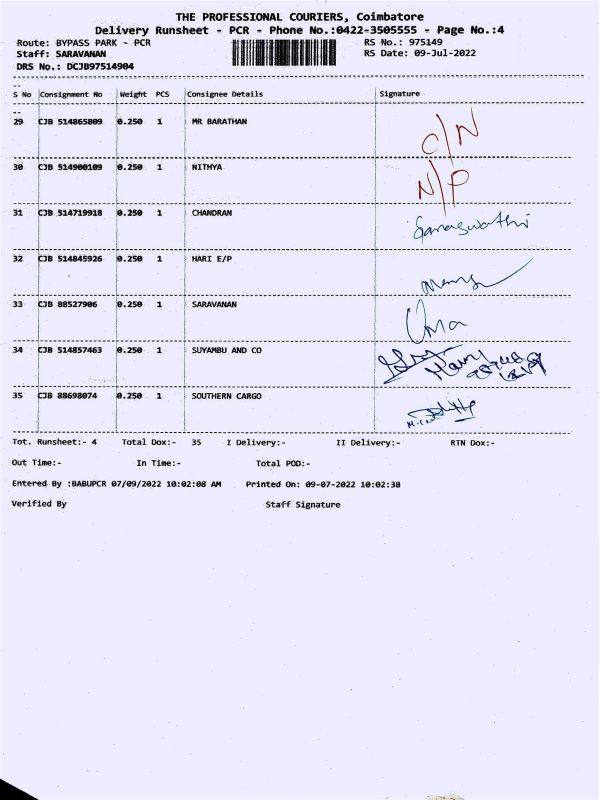 THE PROFESSIONAL COURIERS, Coimbatore
Delivery Runsheet - PCR - Phone No.:0422-3505555 - Page No.:4
Route: BYPASS PARK - PCR RS No.: 975149
Staff: SARAVANAN RS Date: 09-Jul-2022
DRS No.: DCJB97514904
S No Consignment No Weight PCS Consignee Details Signature
29 CJB 514865809 0.250 1 MR BARATHAN C/N
30 CJB 514900109 0.250 1 NITHYA N/P
31 CJB 514719918 0.250 1 CHANDRAN Saraswathi
32 CJB 514845926 0.250 1 HARI E/P
33 CJB 88527906 0.250 1 SARAVANAN Uma
34 CJB 514857463 0.250 1 SUYAMBU AND CO
35 CJB 88698074 0.250 1 SOUTHERN CARGO
Tot. Runsheet:- 4 Total Dox:- 35 I Delivery:- II Delivery:- RTN Dox:-
Out Time:- In Time:- Total POD:-
Entered By :BABUPCR 07/09/2022 10:02:08 AM Printed On: 09-07-2022 10:02:38
Verified By Staff Signature